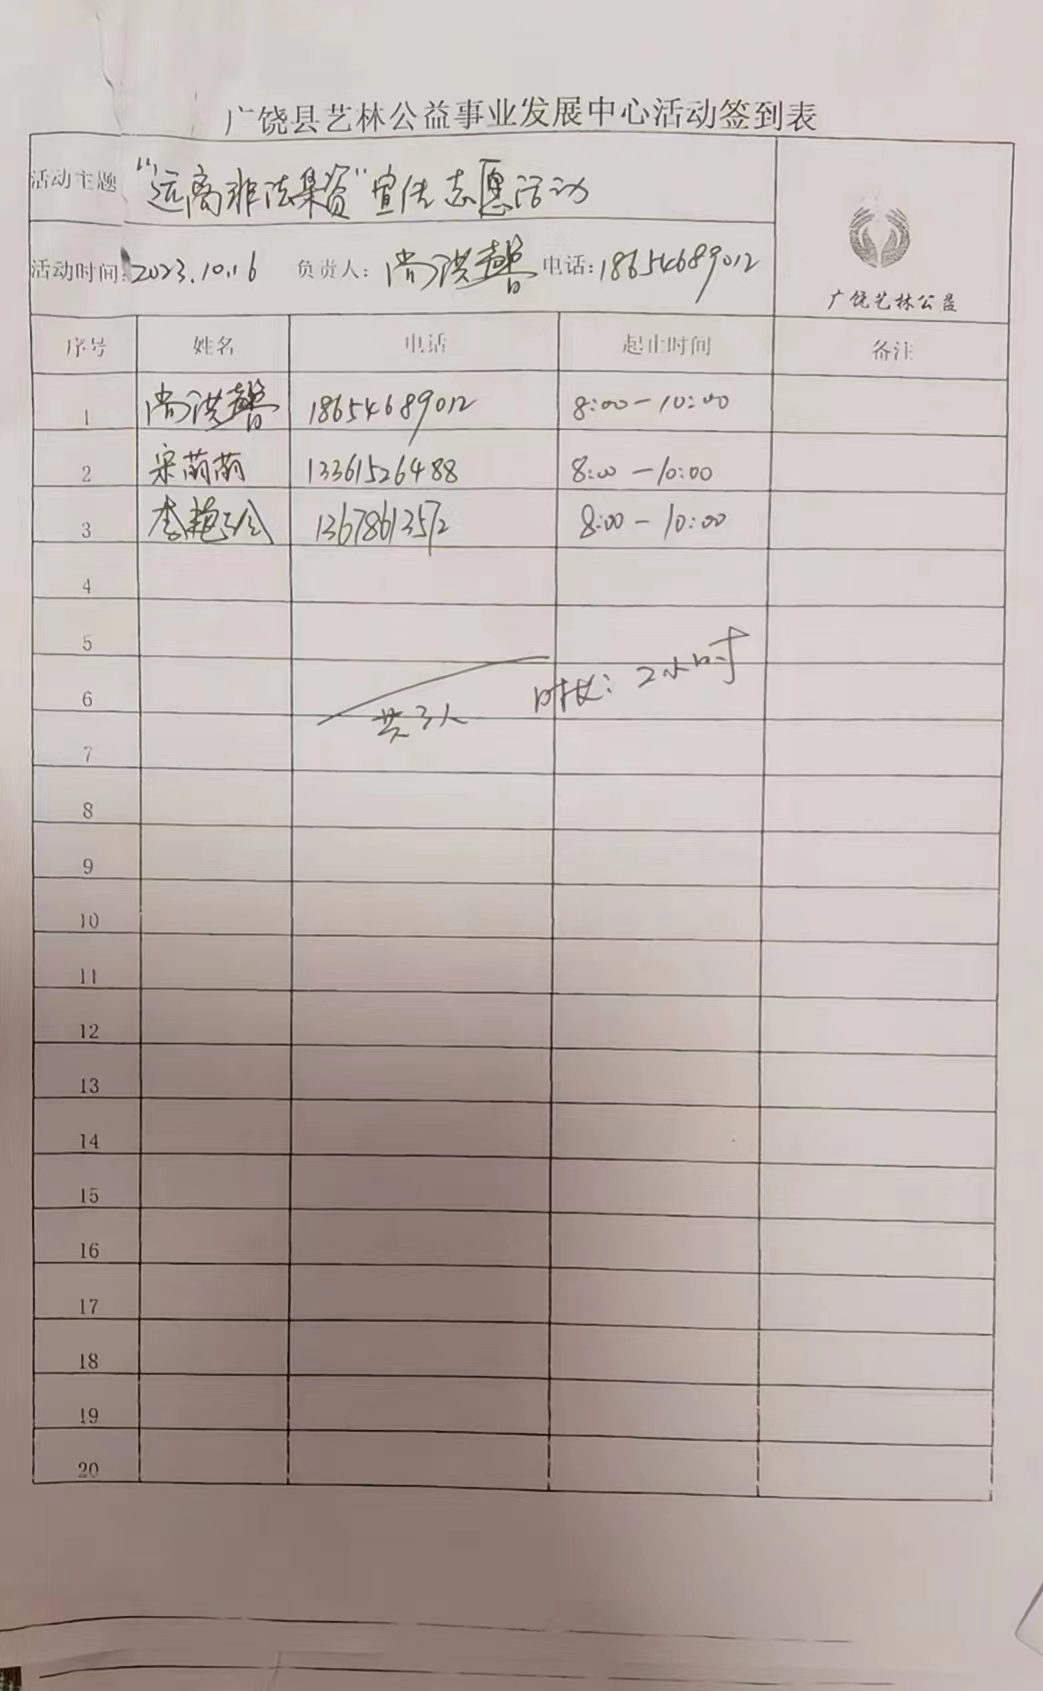 广饶县艺林公益事业发展中心活动签到表
活动主题 “远离非法集资”宣传志愿活动
活动时间: 2023.10.16 负责人: 尚洪馨 电话: 18654689012
广饶艺林公益
序号 姓名 电话 起止时间 备注
1 尚洪馨 18654689012 8:00-10:00
2 宋萌萌 13361526488 8:00-10:00
3 李艳玲 13678613572 8:00-10:00
4
5
6
共3人 时长: 2小时
7
8
9
10
11
12
13
14
15
16
17
18
19
20